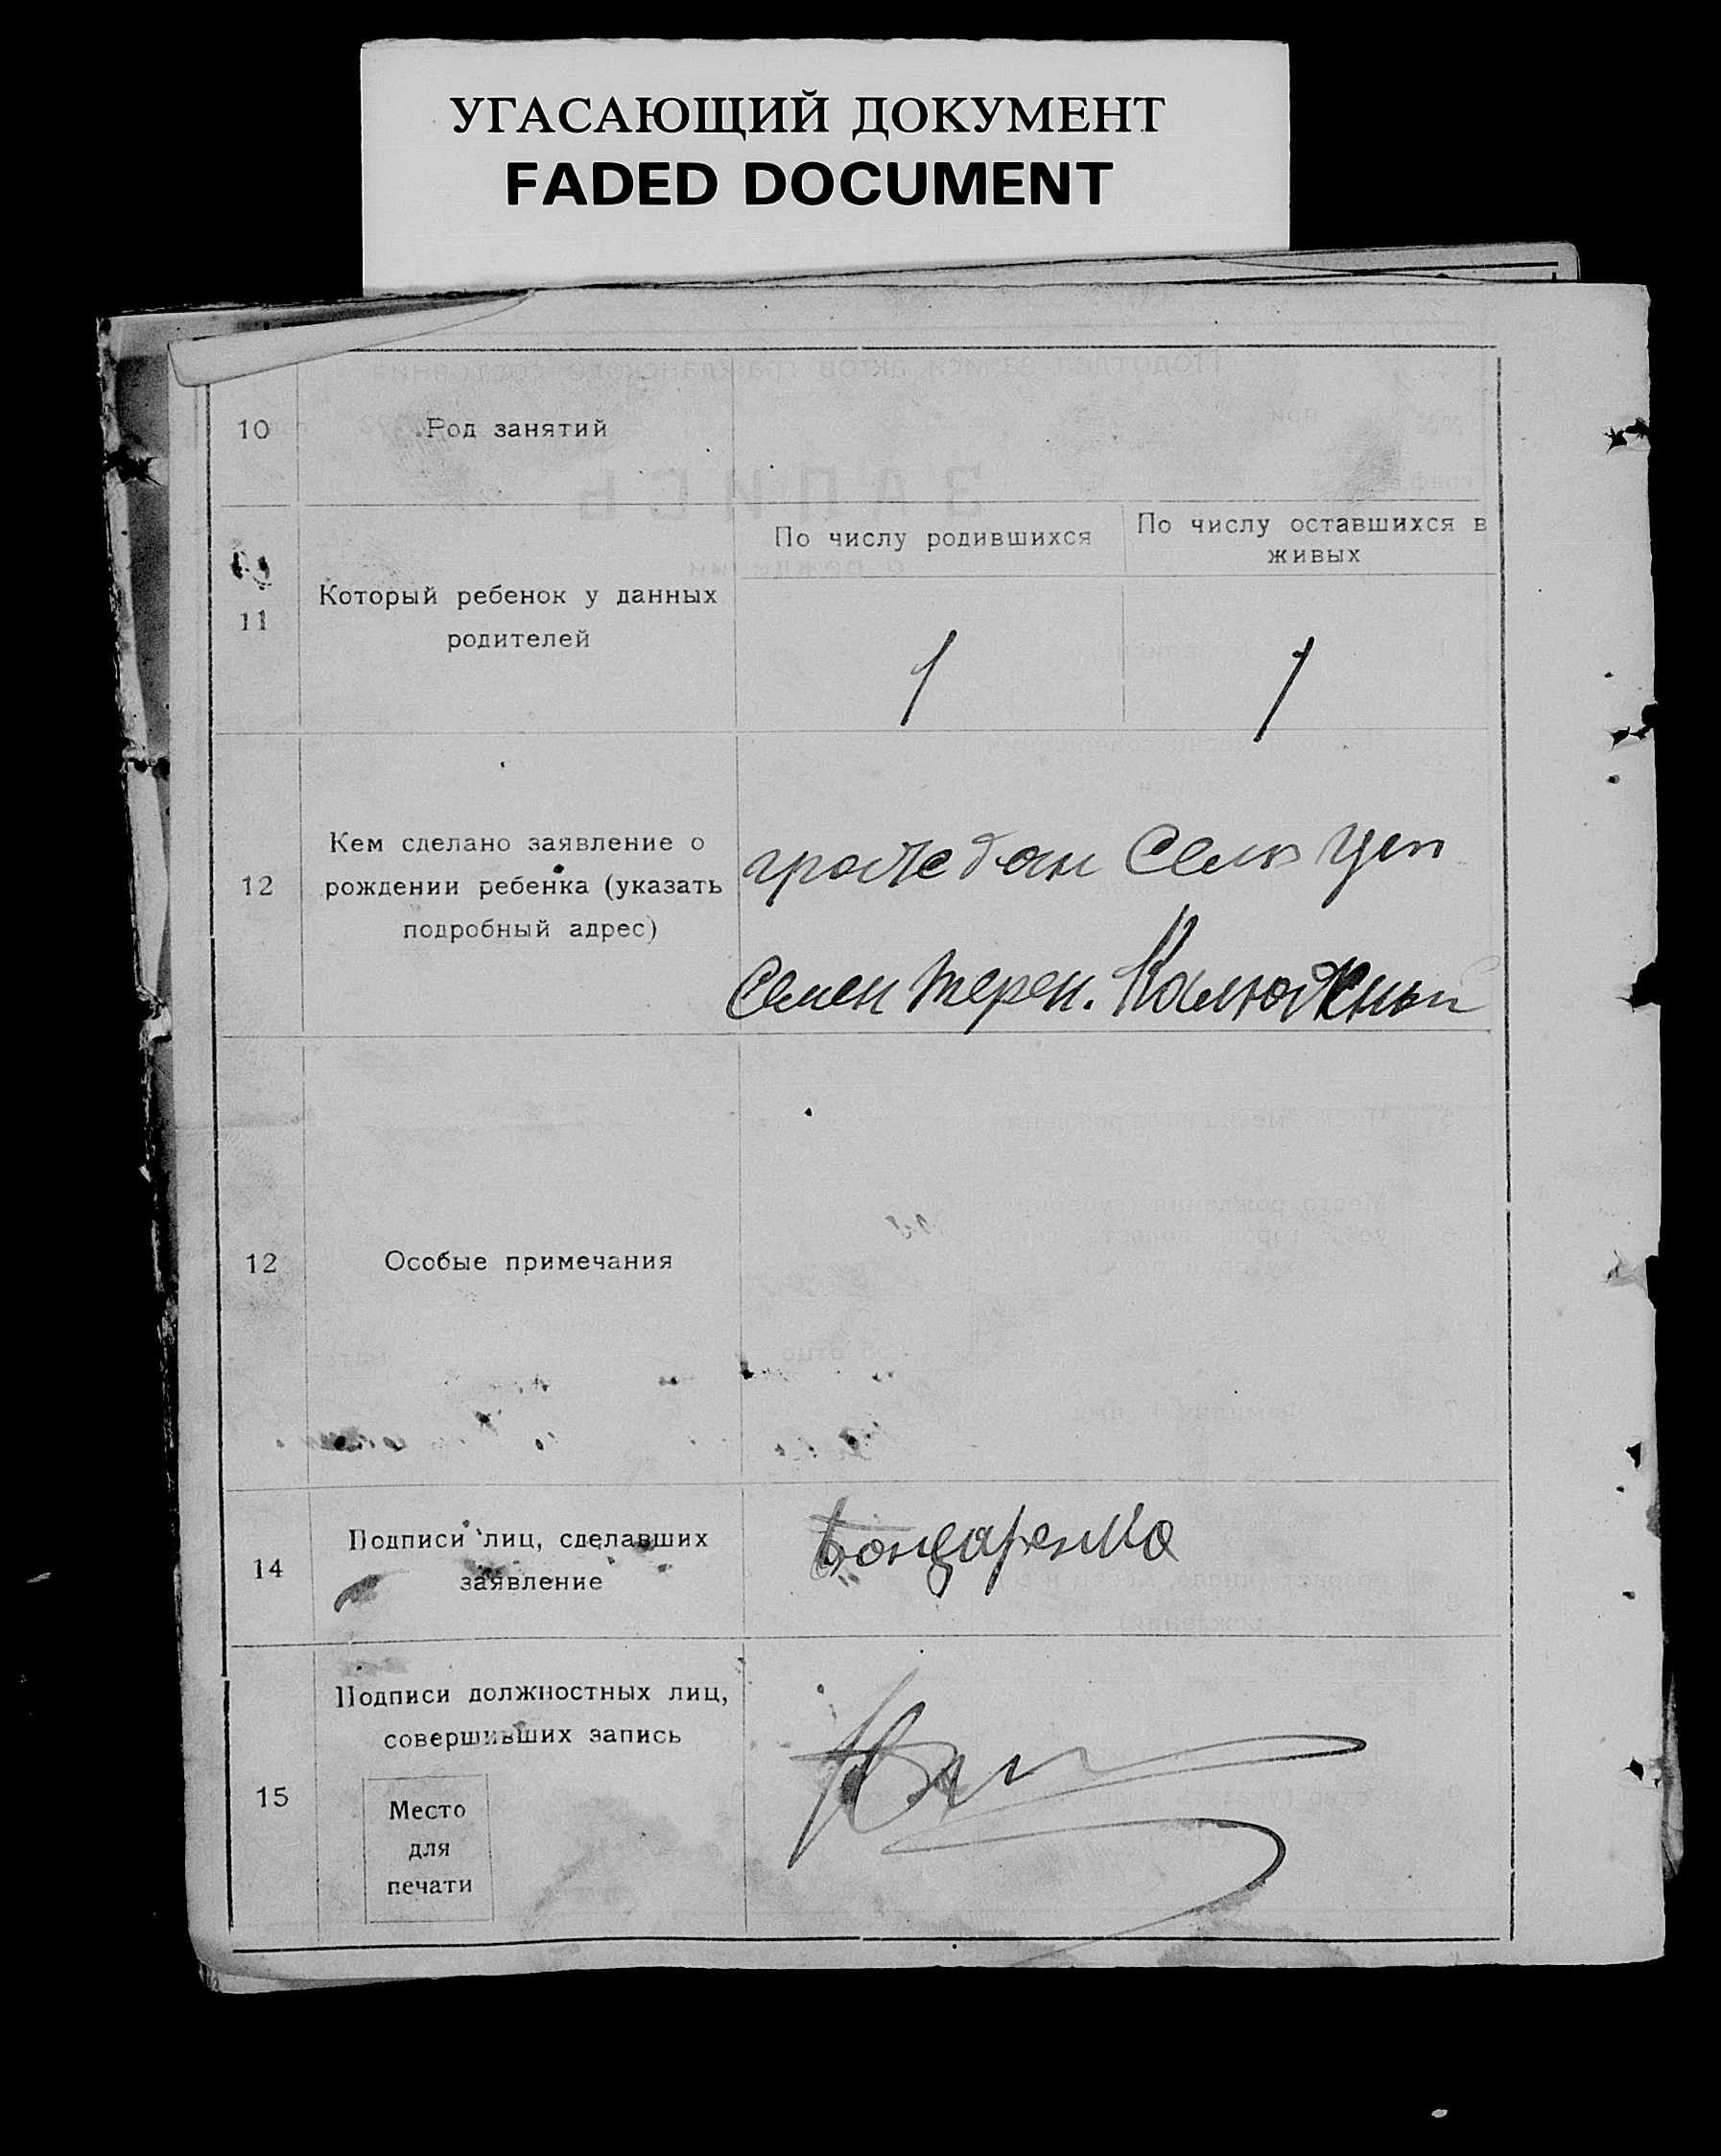 УГАСАЮЩИЙ ДОКУМЕНТ
FADED DOCUMENT
10 Род занятий
11 Который ребенок у данных
родителей
По числу родившихся
По числу оставшихся в
живых
1 1
12 Кем сделано заявление о
рождении ребенка (указать
подробный адрес)
Семен Терен. Калюжный
12 Особые примечания
14 Подписи лиц, сделавших
заявление
Бондаренко
15 Подписи должностных лиц,
совершивших запись
Место
для
печати